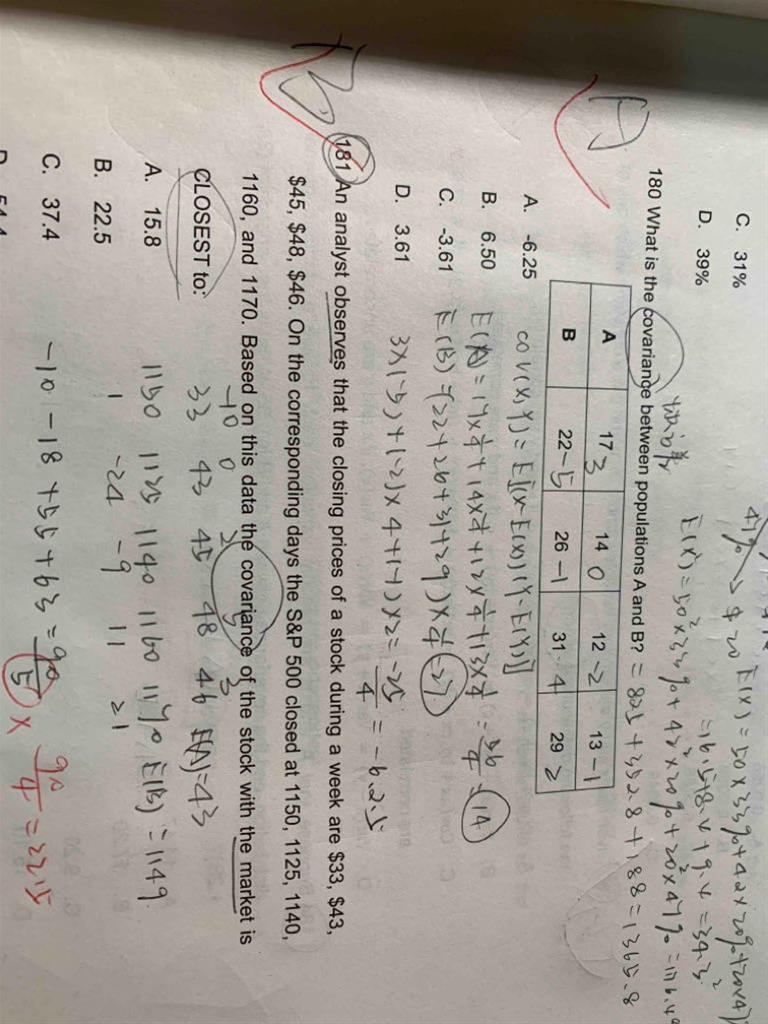 C. 31%
D. 39%
47% → $20 E(X) = 50×33%+42×20%+20×47%
= 16.5+8.4+9.4 = 34.3
E(X²) = 50²×33%+42²×20%+20²×47%
180 What is the covariance between populations A and B? = 825+352.8+188=1365.8
A 17 3 14 0 12 -2 13 -1
B 22 -5 26 -1 31 4 29 2
A. -6.25 cov(x,y) = E[(x-E(x))(Y-E(Y))]
B. 6.50 E(A) = 17×1/4+14×1/4+12×1/4+13×1/4 = 56/4 = 14
C. -3.61 E(B) = (22+26+31+29)×1/4 = 27
D. 3.61 3×(-5)+(-2)×4+(-1)×2 = -25/4 = -6.25
181 An analyst observes that the closing prices of a stock during a week are $33, $43,
$45, $48, $46. On the corresponding days the S&P 500 closed at 1150, 1125, 1140,
1160, and 1170. Based on this data the covariance of the stock with the market is
CLOSEST to:
-10 0 2 5 3
33 43 45 48 46 E(A)=43
A. 15.8 1150 1125 1140 1160 1170 E(B)=1149
B. 22.5 1 -24 -9 11 21
C. 37.4 -10-18+55+63=90/5 × 90/4=22.5
D. 54.4